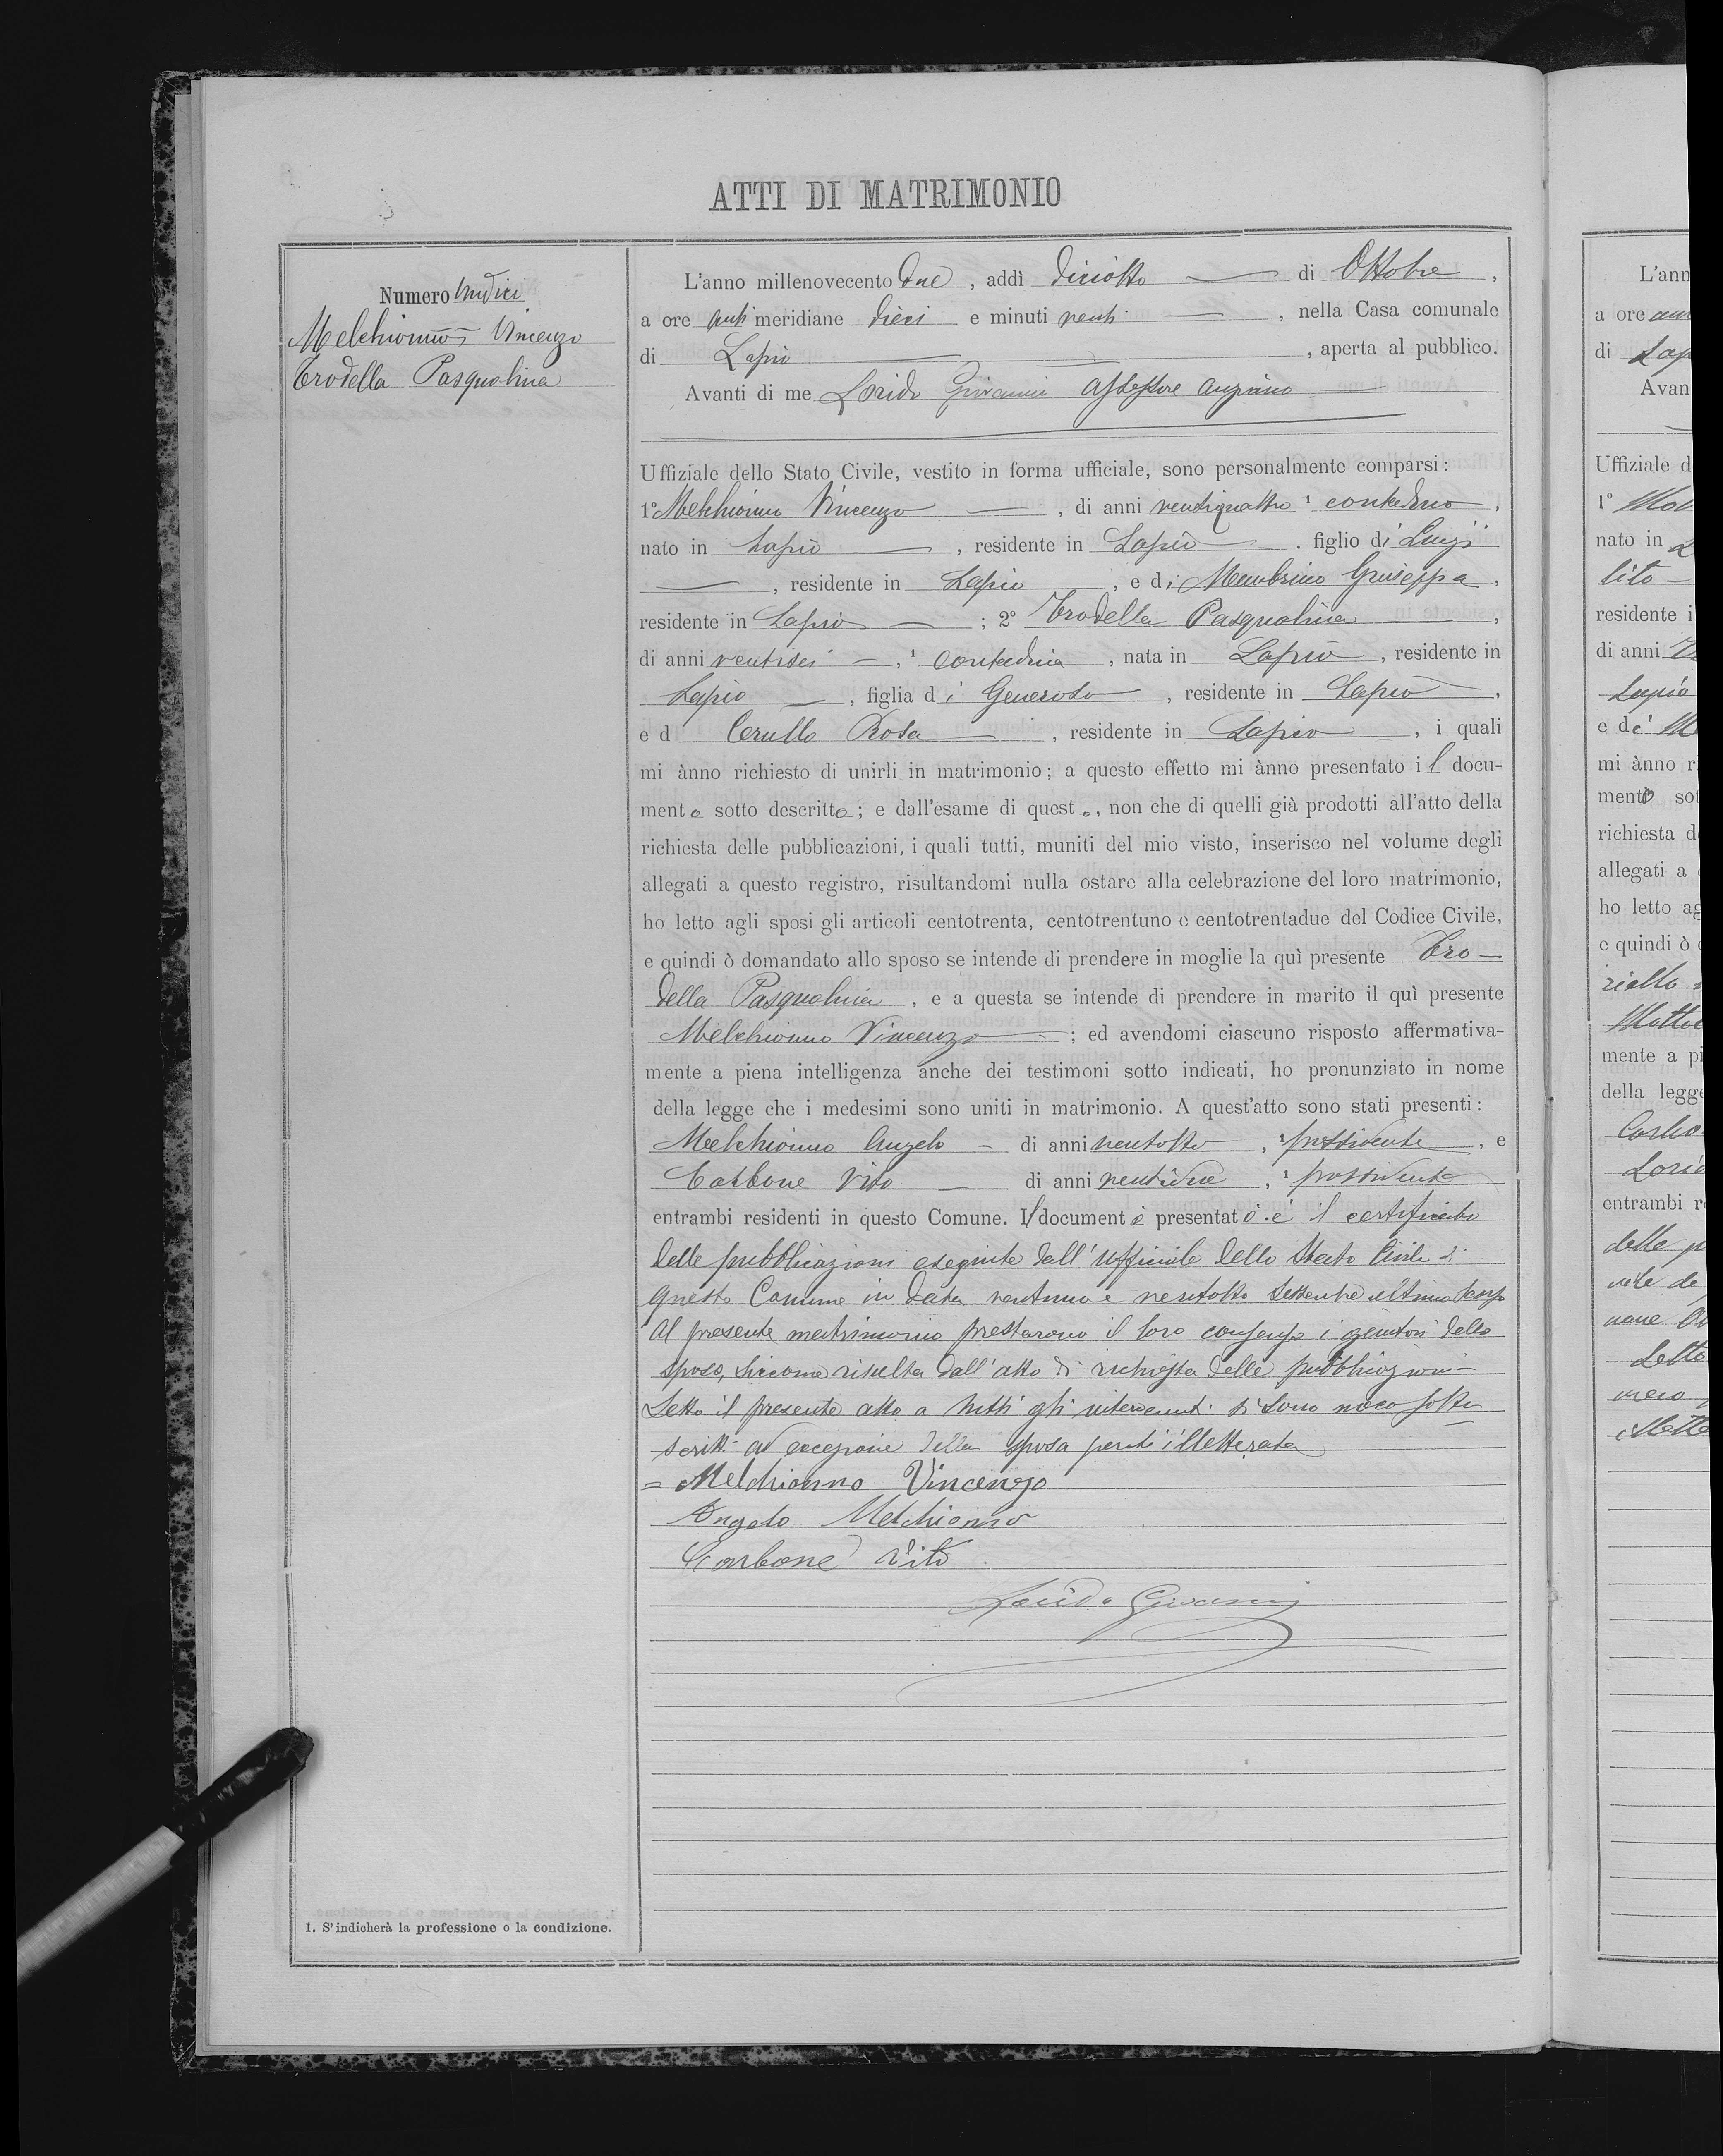 ATTI DI MATRIMONIO
Numero Undici
Melchionno Vincenzo
Trodella Pasqualina
L'anno millenovecento due, addì diciotto di Ottobre,
a ore anti meridiane dieci e minuti venti, nella Casa comunale
di Lapio, aperta al pubblico.
Avanti di me Lorido Giovanni Assessore anziano
Uffiziale dello Stato Civile, vestito in forma ufficiale, sono personalmente comparsi:
1º Melchionno Vincenzo, di anni ventiquattro ¹ contadino,
nato in Lapio, residente in Lapio. figlio di Luigi
, residente in Lapio, e di Membrino Giuseppa,
residente in Lapio; 2º Trodella Pasqualina,
di anni ventisei, ¹ contadina, nata in Lapio, residente in
Lapio, figlia di Generoso, residente in Lapio,
e d Cerullo Rosa, residente in Lapio, i quali
mi ànno richiesto di unirli in matrimonio; a questo effetto mi ànno presentato il docu-
mento sotto descritto; e dall'esame di questo, non che di quelli già prodotti all'atto della
richiesta delle pubblicazioni, i quali tutti, muniti del mio visto, inserisco nel volume degli
allegati a questo registro, risultandomi nulla ostare alla celebrazione del loro matrimonio,
ho letto agli sposi gli articoli centotrenta, centotrentuno e centotrentadue del Codice Civile,
e quindi ò domandato allo sposo se intende di prendere in moglie la quì presente Tro-
della Pasqualina, e a questa se intende di prendere in marito il quì presente
Melchionno Vincenzo; ed avendomi ciascuno risposto affermativa-
mente a piena intelligenza anche dei testimoni sotto indicati, ho pronunziato in nome
della legge che i medesimi sono uniti in matrimonio. A quest'atto sono stati presenti:
Melchionno Angelo di anni ventotto, ¹ possidente, e
Carbone Vito di anni ventidue, ¹ possidente
entrambi residenti in questo Comune. Il documento presentato è il certificato
delle pubblicazioni eseguite dall'ufficiale dello Stato Civile di
questo Comune in data ventuno e ventotto Settembre ultimo scorso
Al presente matrimonio prestarono il loro consenso i genitori dello
sposo, siccome risulta dall'atto di richiesta delle pubblicazioni
Letto il presente atto a tutti gli intervenuti si sono meco sotto
scritti ad eccezione della sposa perchè illetterata
= Melchionno Vincenzo
Angelo Melchionno
Carbone Vito
Lorido Giovanni
1. S'indicherà la professione o la condizione.
L'ann
a ore
di Lap
Avan
Uffiziale d
1º
nato in L
lito
residente i
di anni
Lapio
e di
mi ànno r
mento sot
richiesta d
allegati a
ho letto ag
e quindi ò
mente a pi
della legge
entrambi r